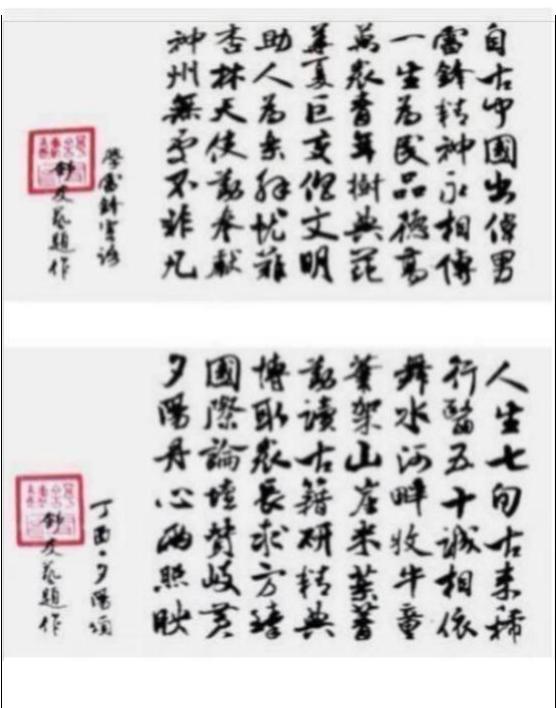 自古中國出偉男
雷鋒精神永相傳
一生為民品德高
萬衆青年樹典范
華夏巨变促文明
助人為樂解忧難
杏林天使勤奉献
神州無處不非凡
學雷鋒寄語
舒友藝題作
人生七旬古来稀
行醫五十誠相依
舞水河畔牧牛童
架山崖采
勤讀古籍研精典
博取衆長求方臻
國際論壇贊岐黄
夕陽丹心両照映
丁酉·夕陽頌
舒友藝題作